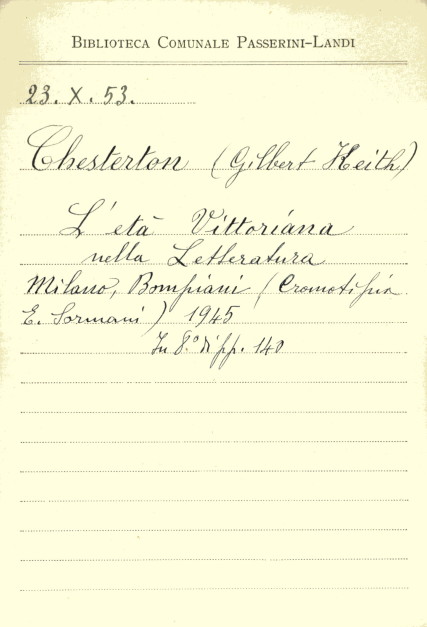 BIBLIOTECA COMUNALE PASSERINI-LANDI
23. X. 53.
Chesterton (Gilbert Keith)
L'età Vittoriana
nella Letteratura
Milano, Bompiani (Cromotipia
E. Sormani) 1945
In 8.° di pp. 140